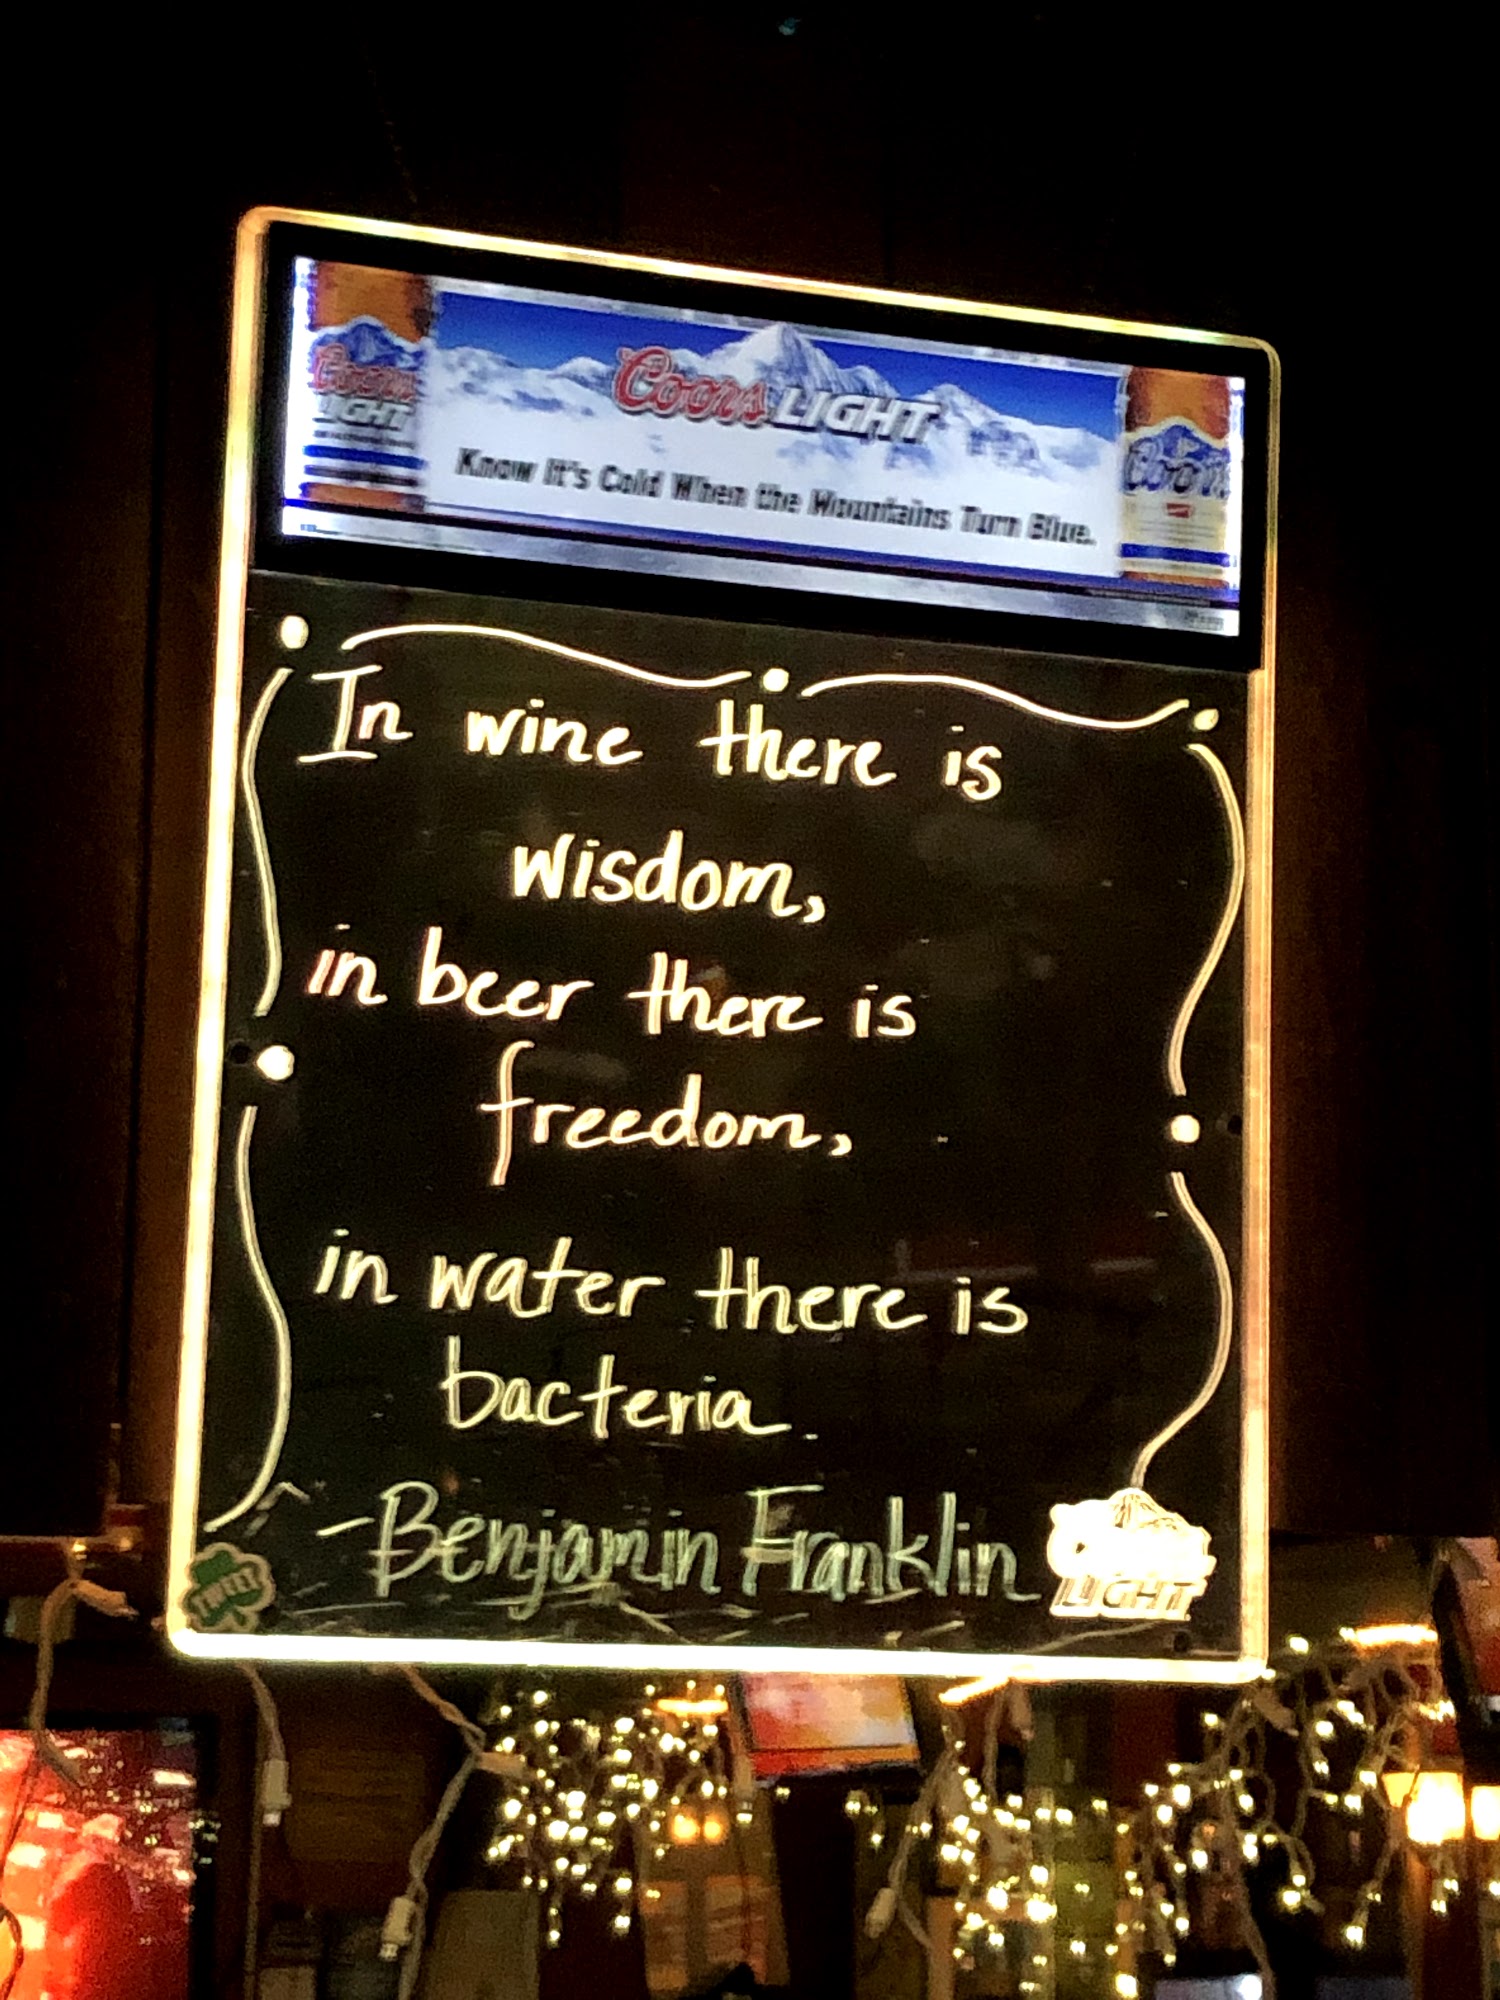 Coors LIGHT
Know It's Cold When the Mountains Turn Blue.
Coors
LIGHT
Coors
In wine there is
wisdom,
in beer there is
freedom,
in water there is
bacteria.
-Benjamin Franklin
TWIST
Coors
LIGHT